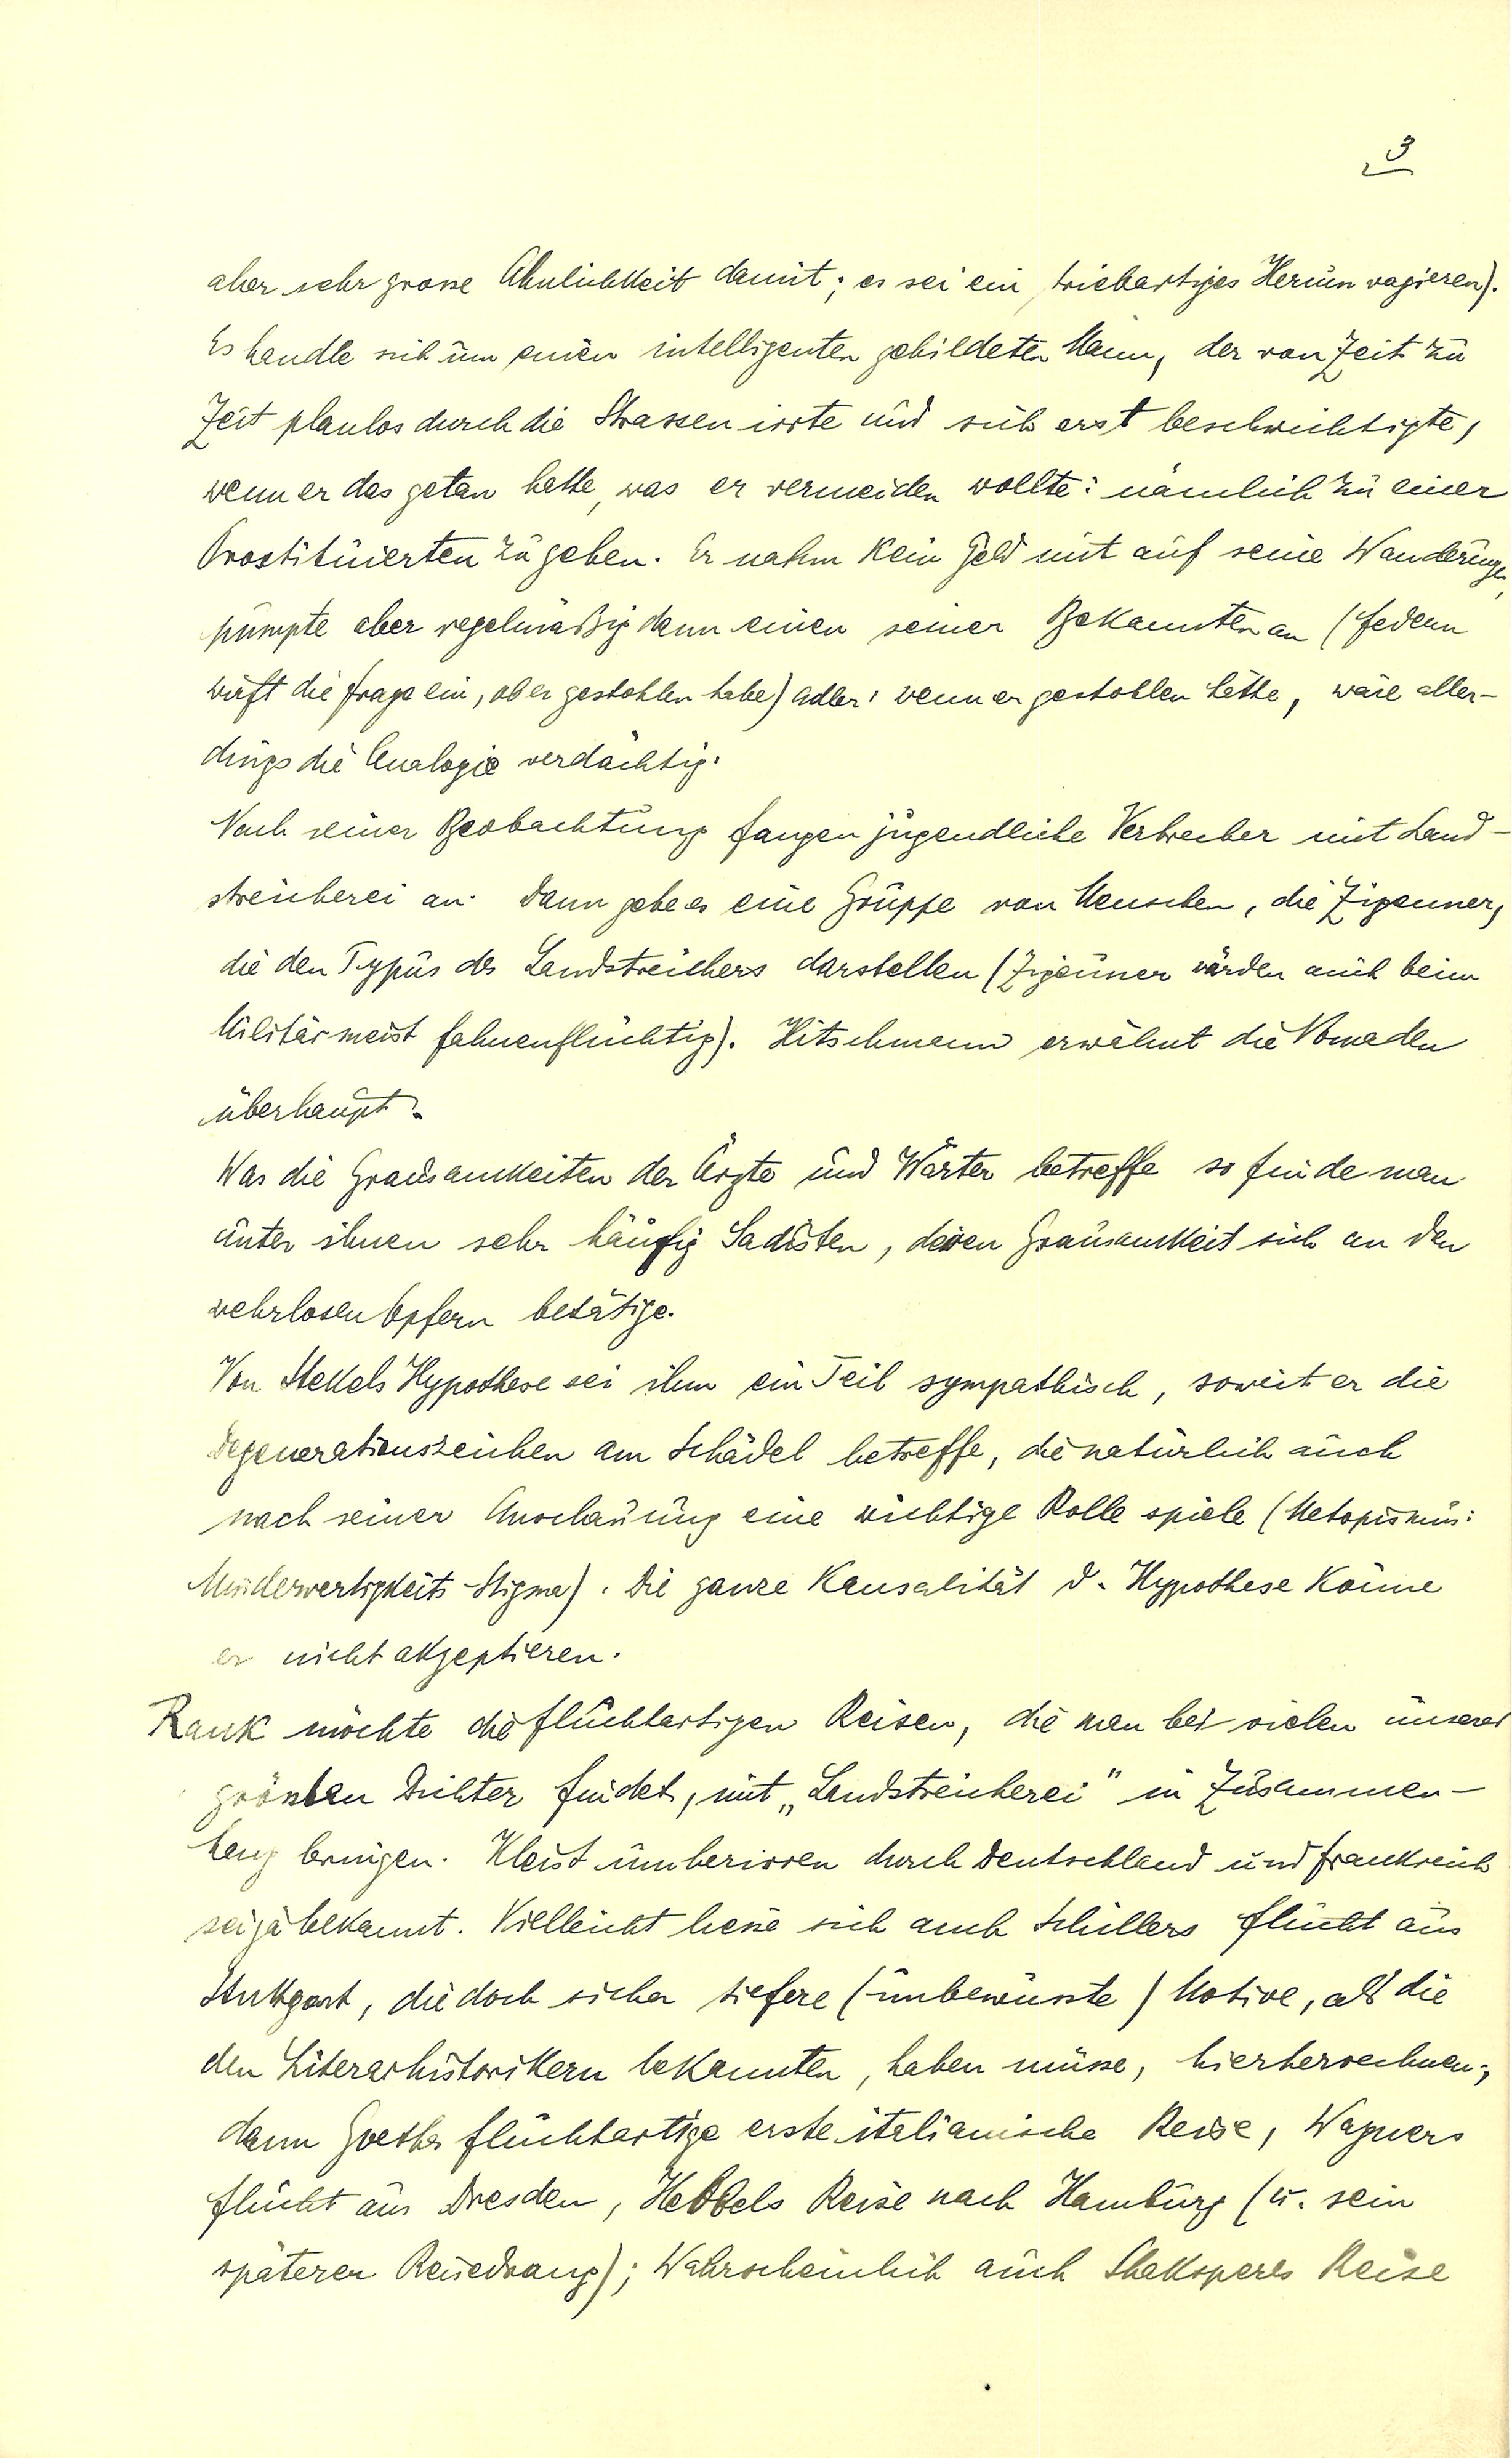 3
aber sehr grosse Ähnlichkeit damit; es sei ein triebartiges Herumvagieren).
Es handle sich um einen intelligenten gebildeten Mann, der von Zeit zu
Zeit planlos durch die Strassen irrte und sich erst beschwichtigte,
wenn er das getan hatte, was er vermeiden wollte: nämlich zu einer
Prostituierten zu gehen. Er nahm kein Geld mit auf seine Wanderungen,
pumpte aber regelmäßig dann einen seiner Bekannten an (Federn
wirft die Frage ein, ob er gestohlen habe) Adler: wenn er gestohlen hätte, wäre aller-
dings die Analogie verdächtig.
Nach seiner Beobachtung fangen jugendliche Verbrecher mit Land-
streicherei an. Dann gebe es eine Gruppe von Menschen, die Zigeuner,
die den Typus des Landstreichers darstellen (Zigeuner würden auch beim
Militär meist fahnenflüchtig). Hitschmann erwähnt die Nomaden
überhaupt.
Was die Grausamkeiten der Ärzte und Wärter betreffe so finde man
unter ihnen sehr häufig Sadisten, deren Grausamkeit sich an den
wehrlosen Opfern betätige.
Von Stekels Hypothese sei ihm ein Teil sympathisch, soweit er die
Degenerationszeichen am Schädel betreffe, die natürlich auch
nach seiner Anschauung eine wichtige Rolle spiele (Metopismus:
Minderwertigkeits-Stigma). Die ganze Kausalität d. Hypothese könne
er nicht akzeptieren.
Rank möchte die fluchtartigen Reisen, die man bei vielen unserer
grössten Dichter findet, mit „Landstreicherei" in Zusammen-
hang bringen. Kleist umherirren durch Deutschland und Frankreich
sei ja bekannt. Vielleicht liesse sich auch Schillers Flucht aus
Stuttgart, die doch sicher tiefere (unbewusste) Motive, als die
den Literarhistorikern bekannten, haben müsse, hierherrechnen;
dann Goethes fluchtartige erste italianische Reise, Wagners
Flucht aus Dresden, Hebbels Reise nach Hamburg (u. sein
späterer Reisedrang); Wahrscheinlich auch Shaksperes Reise